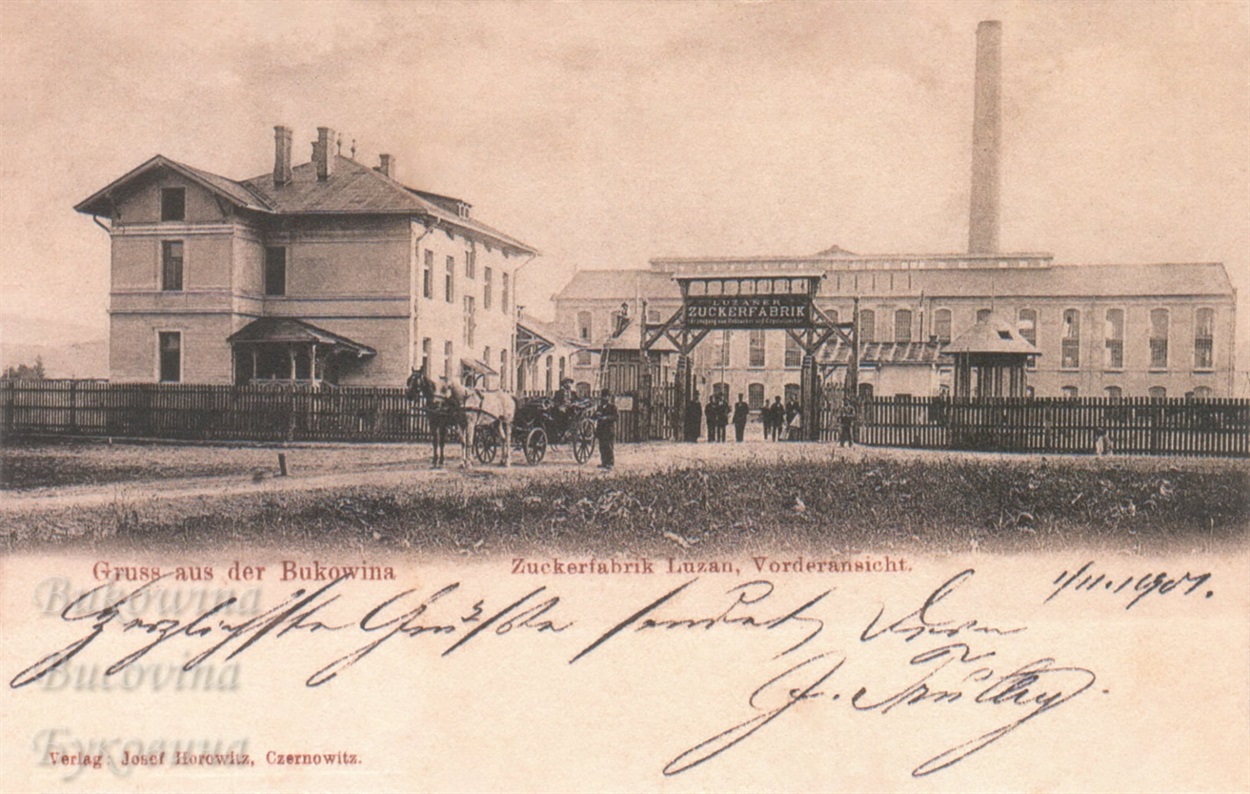 LUZANER
ZUCKERFABRIK
Gruss aus der Bukowina
Zuckerfabrik Luzan, Vorderansicht.
1/11. 1901.
Herzlichste Grüße sendet Dein
J.
Bukowina
Bucovina
Буковина
Verlag: Josef Horowitz, Czernowitz.